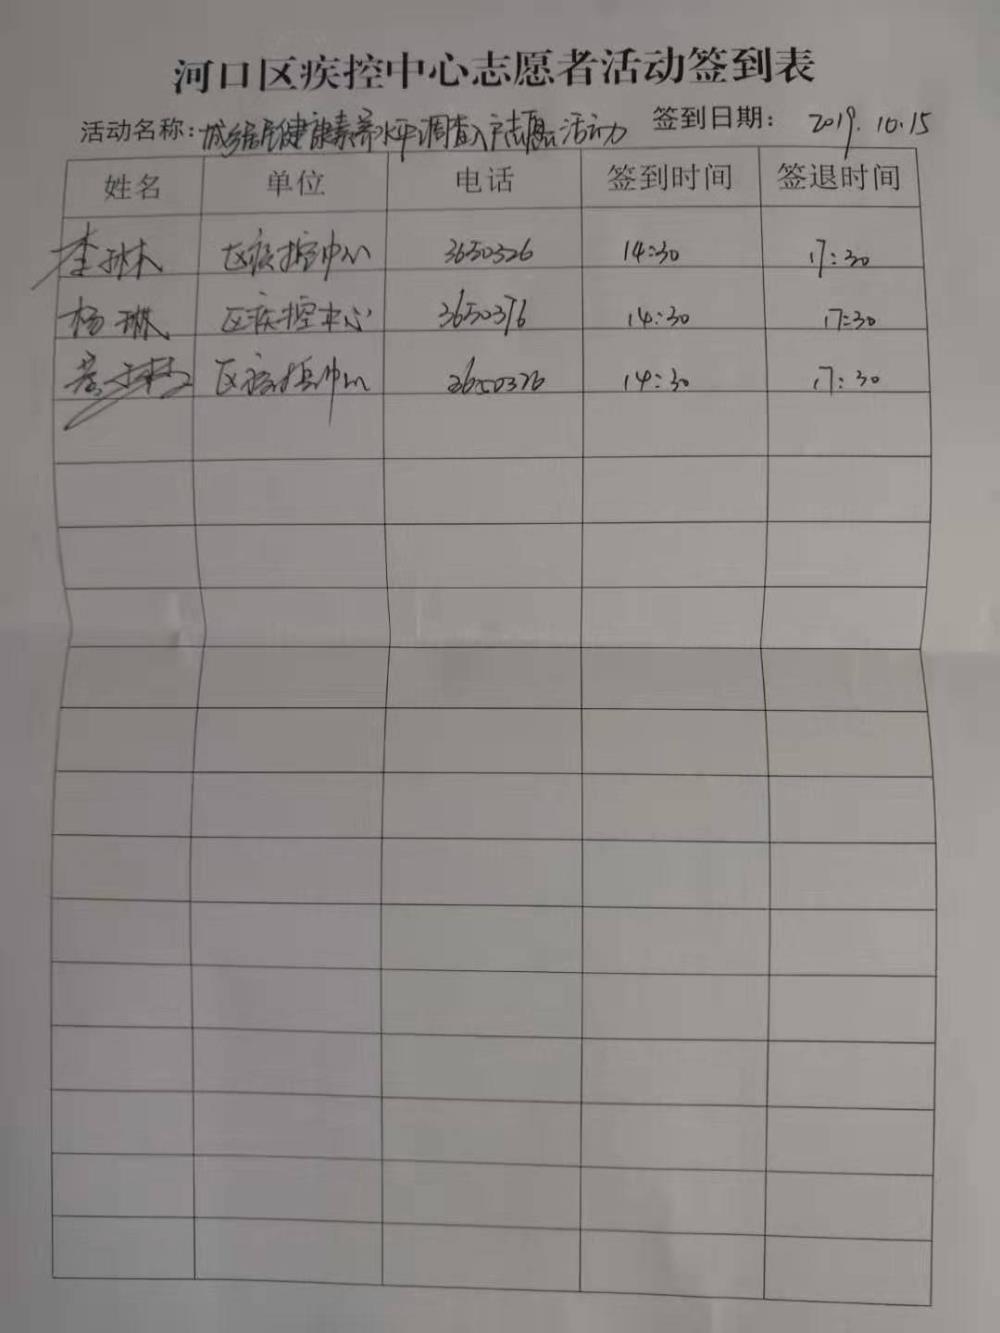 河口区疾控中心志愿者活动签到表
活动名称：城乡居民健康素养水平调查入户志愿活动 签到日期： 2019.10.15
姓名 单位 电话 签到时间 签退时间
李琳 区疾控中心 3650326 14:30 17:30
杨琳 区疾控中心 3650376 14:30 17:30
区疾控中心 3650376 14:30 17:30